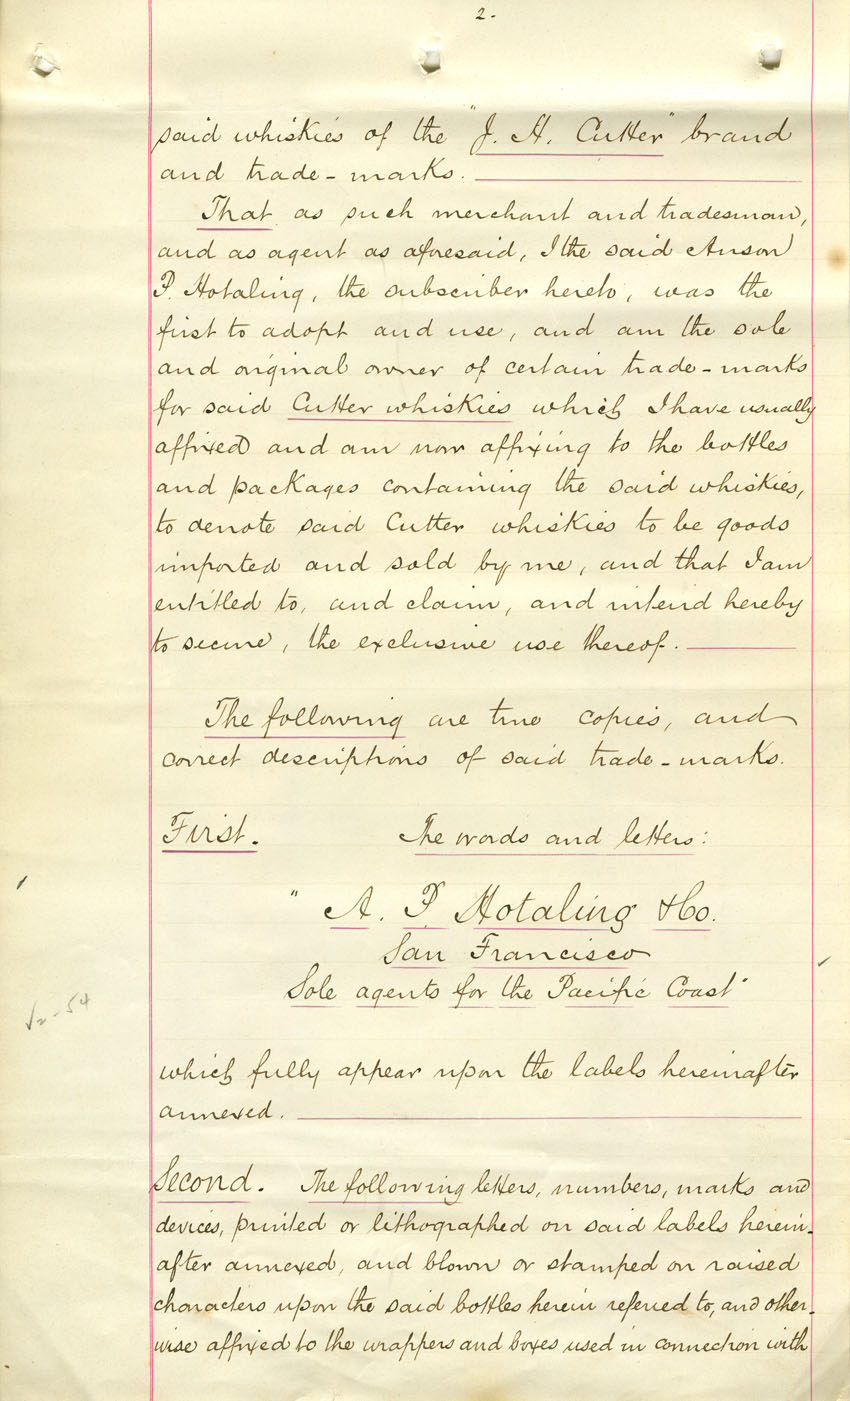 2.
said whiskies of the "J. H. Cutter" brand
and trade-marks.
That as such merchant and tradesman,
and as agent as aforesaid, I the said Anson
P. Hotaling, the subscriber hereto, was the
first to adopt and use, and am the sole
and original owner of certain trade-marks
for said Cutter whiskies which I have usually
affixed and am now affixing to the bottles
and packages containing the said whiskies,
to denote said Cutter whiskies to be goods
imported and sold by me, and that I am
entitled to, and claim, and intend hereby
to secure, the exclusive use thereof.
The following are true copies, and
correct descriptions of said trade-marks.
First. The words and letters:
"A. P Hotaling & Co.
San Francisco
Sole agents for the Pacific Coast"
which fully appear upon the labels hereinafter
annexed.
Second. The following letters, numbers, marks and
devices, printed or lithographed on said labels herein-
after annexed, and blown or stamped on raised
characters upon the said bottles herein referred to, and other-
wise affixed to the wrappers and boxes used in connection with